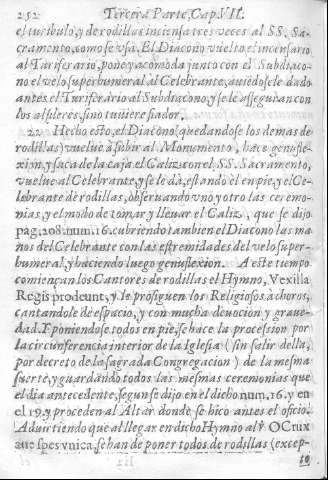 252 Tercera Parte, Cap. VII.
el turibulo, y de rodillas inciensa tres veces al SS. Sa-
cramento, como se vsa. El Diacono vuelto el incensario
al Turiferario, pone, y acomoda junto con el Subdiaco-
no el velo superhumeral al Celebrante, auiedosele dado
antes el Turiferario al Subdiacono, y se le asseguran con
los alfileres, sino tuuiere fiador.
22 Hecho esto, el Diacono (quedandose los demas de
rodillas) vuelue à subir al Monumento, hace genufle-
xion, y saca de la caja el Caliz con el SS. Sacramento,
vuelue al Celebrante, y se le dà, estando èl en pie, y el Ce-
lebrante de rodillas, obseruando vno y otro las ceremo-
nias, y el modo de tomar, y lleuar el Caliz, que se dijo
pag. 208. num. 16. cubriendo tambien el Diacono las ma-
nos del Celebrante con las estremidades del velo super-
humeral, y haciendo luego genuflexion. A este tiempo
comiençan los Cantores de rodillas el Hymno, Vexilla
Regis prodeunt, y le prosiguen los Religiosos à choros,
cantandole de espacio, y con mucha deuocion, y graue-
dad. Y poniendose todos en pie, se hace la procession por
la circunferencia interior de la Iglesia (sin salir della,
por decreto de la sagrada Congregacion) de la mesma
suerte, y guardando todos las mesmas ceremonias que
el dia antecedente, segun se dijo en el dicho num. 16. y en
el 19. y proceden al Altar donde se hico antes el oficio.
Aduirtiendo que al llegar en dicho Hymno al ℣. O Crux
aue spes vnica, se han de poner todos de rodillas (excep-
to